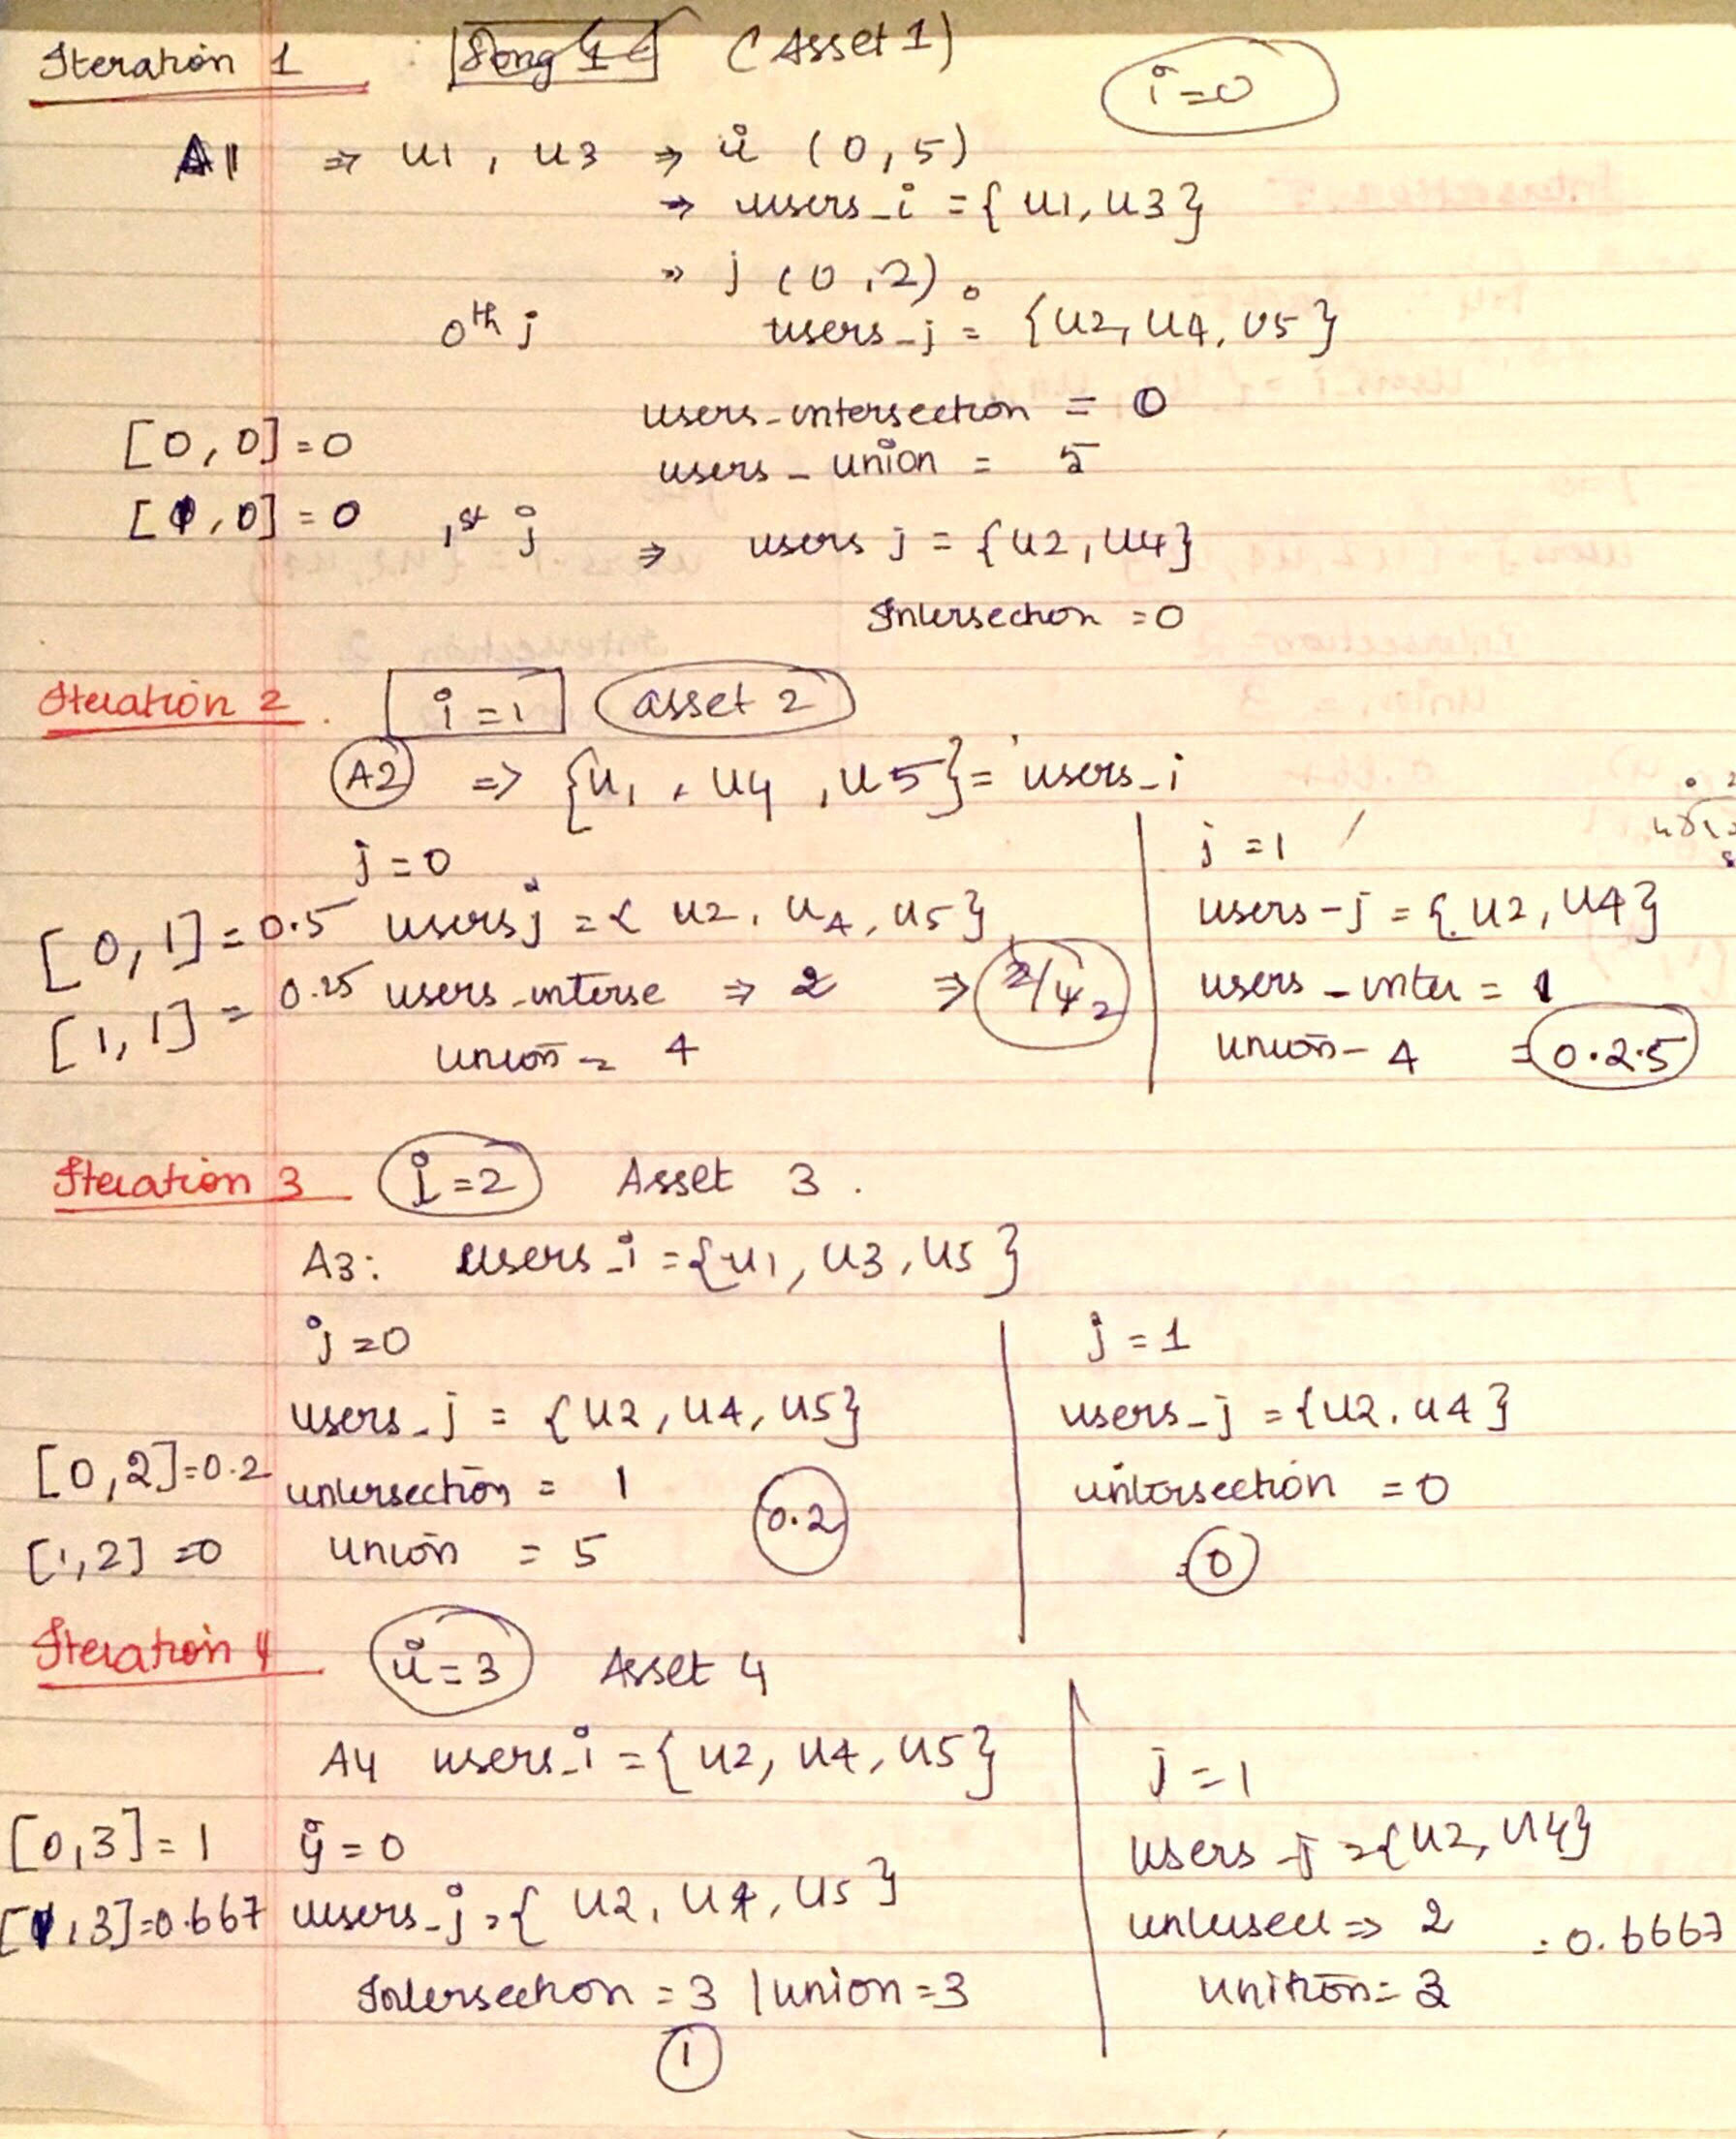 Iteration 1 : Song 1 (Asset 1)
i=0
A1 ⇒ u1, u3 ⇒ i (0,5)
→ users_i = {u1, u3}
» j (0,2).
0th j users_j = {u2, u4, u5}
users_intersection = 0
[0,0]=0
users_union = 5
[1,0]=0 1st j ⇒ users j = {u2, u4}
Intersection = 0
Iteration 2 . i=1 asset 2
A2 => {u1, u4, u5} = users_i
j=0
[0,1]=0.5 users j = { u2, u4, u5}
[1,1]=0.25 users_interse ⇒ 2 ⇒ 2/4 2
union = 4
j=1
users-j = {u2, u4}
users_inter = 1
union- 4 = 0.2.5
Iteration 3 i=2 Asset 3 .
A3: users_i = {u1, u3, u5}
j=0
users_j = {u2, u4, u5}
[0,2]=0.2 intersection = 1 0.2
[1,2]=0 union = 5
j=1
users_j = {u2. u4}
intersection = 0
=0
Iteration 4 i=3 Asset 4
A4 users_i = {u2, u4, u5}
[0,3]=1 j=0
[1,3]=0.667 users_j = { u2, u4, u5}
Intersection = 3 | union = 3
1
j=1
users_j = {u2, u4}
⇒ 2 = 0.6667
unition = 3